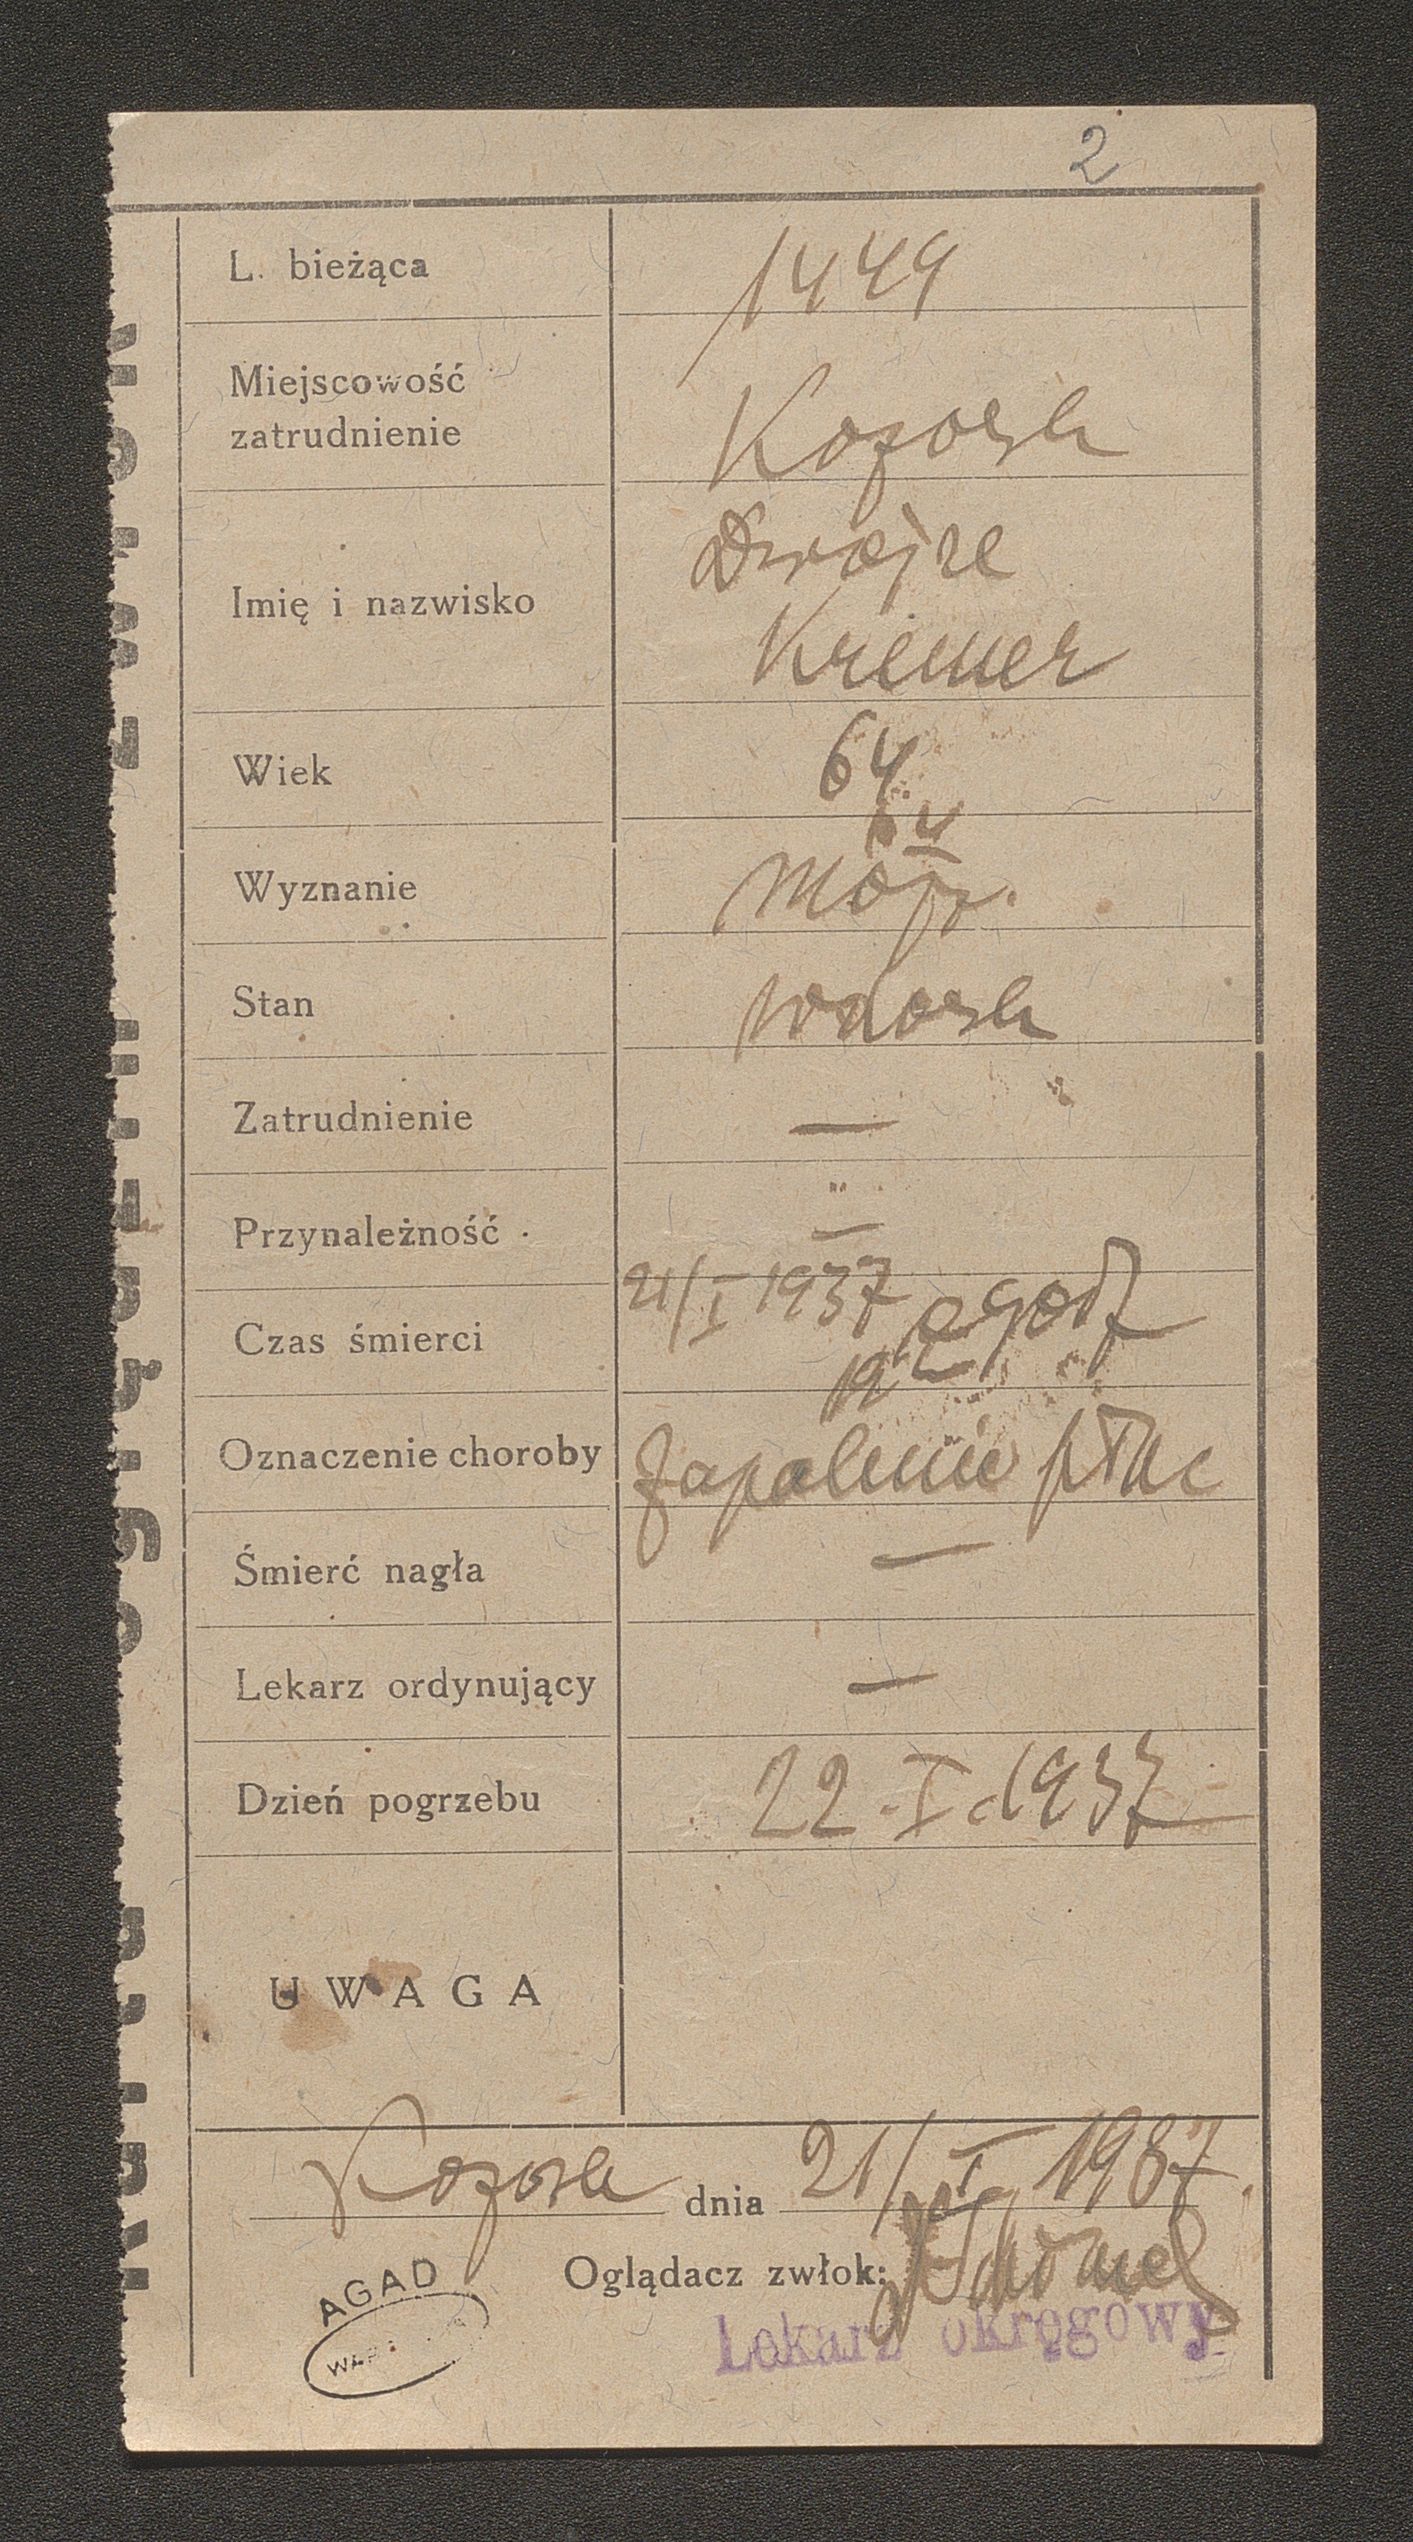 2
L. bieżąca 1449
Miejscowość
zatrudnienie Kozowa
Dwojre
Imię i nazwisko
Kremer
Wiek 64
64
Wyznanie mojż.
Stan wdowa
Zatrudnienie —
Przynależność —
21/I 1937 o godz
Czas śmierci
12
Oznaczenie choroby Zapalenie płuc
Śmierć nagła —
Lekarz ordynujący —
Dzień pogrzebu 22.I.1937
UWAGA
Kozowa dnia 21/I 1937
Oglądacz zwłok:
Lekarz okręgowy
AGAD